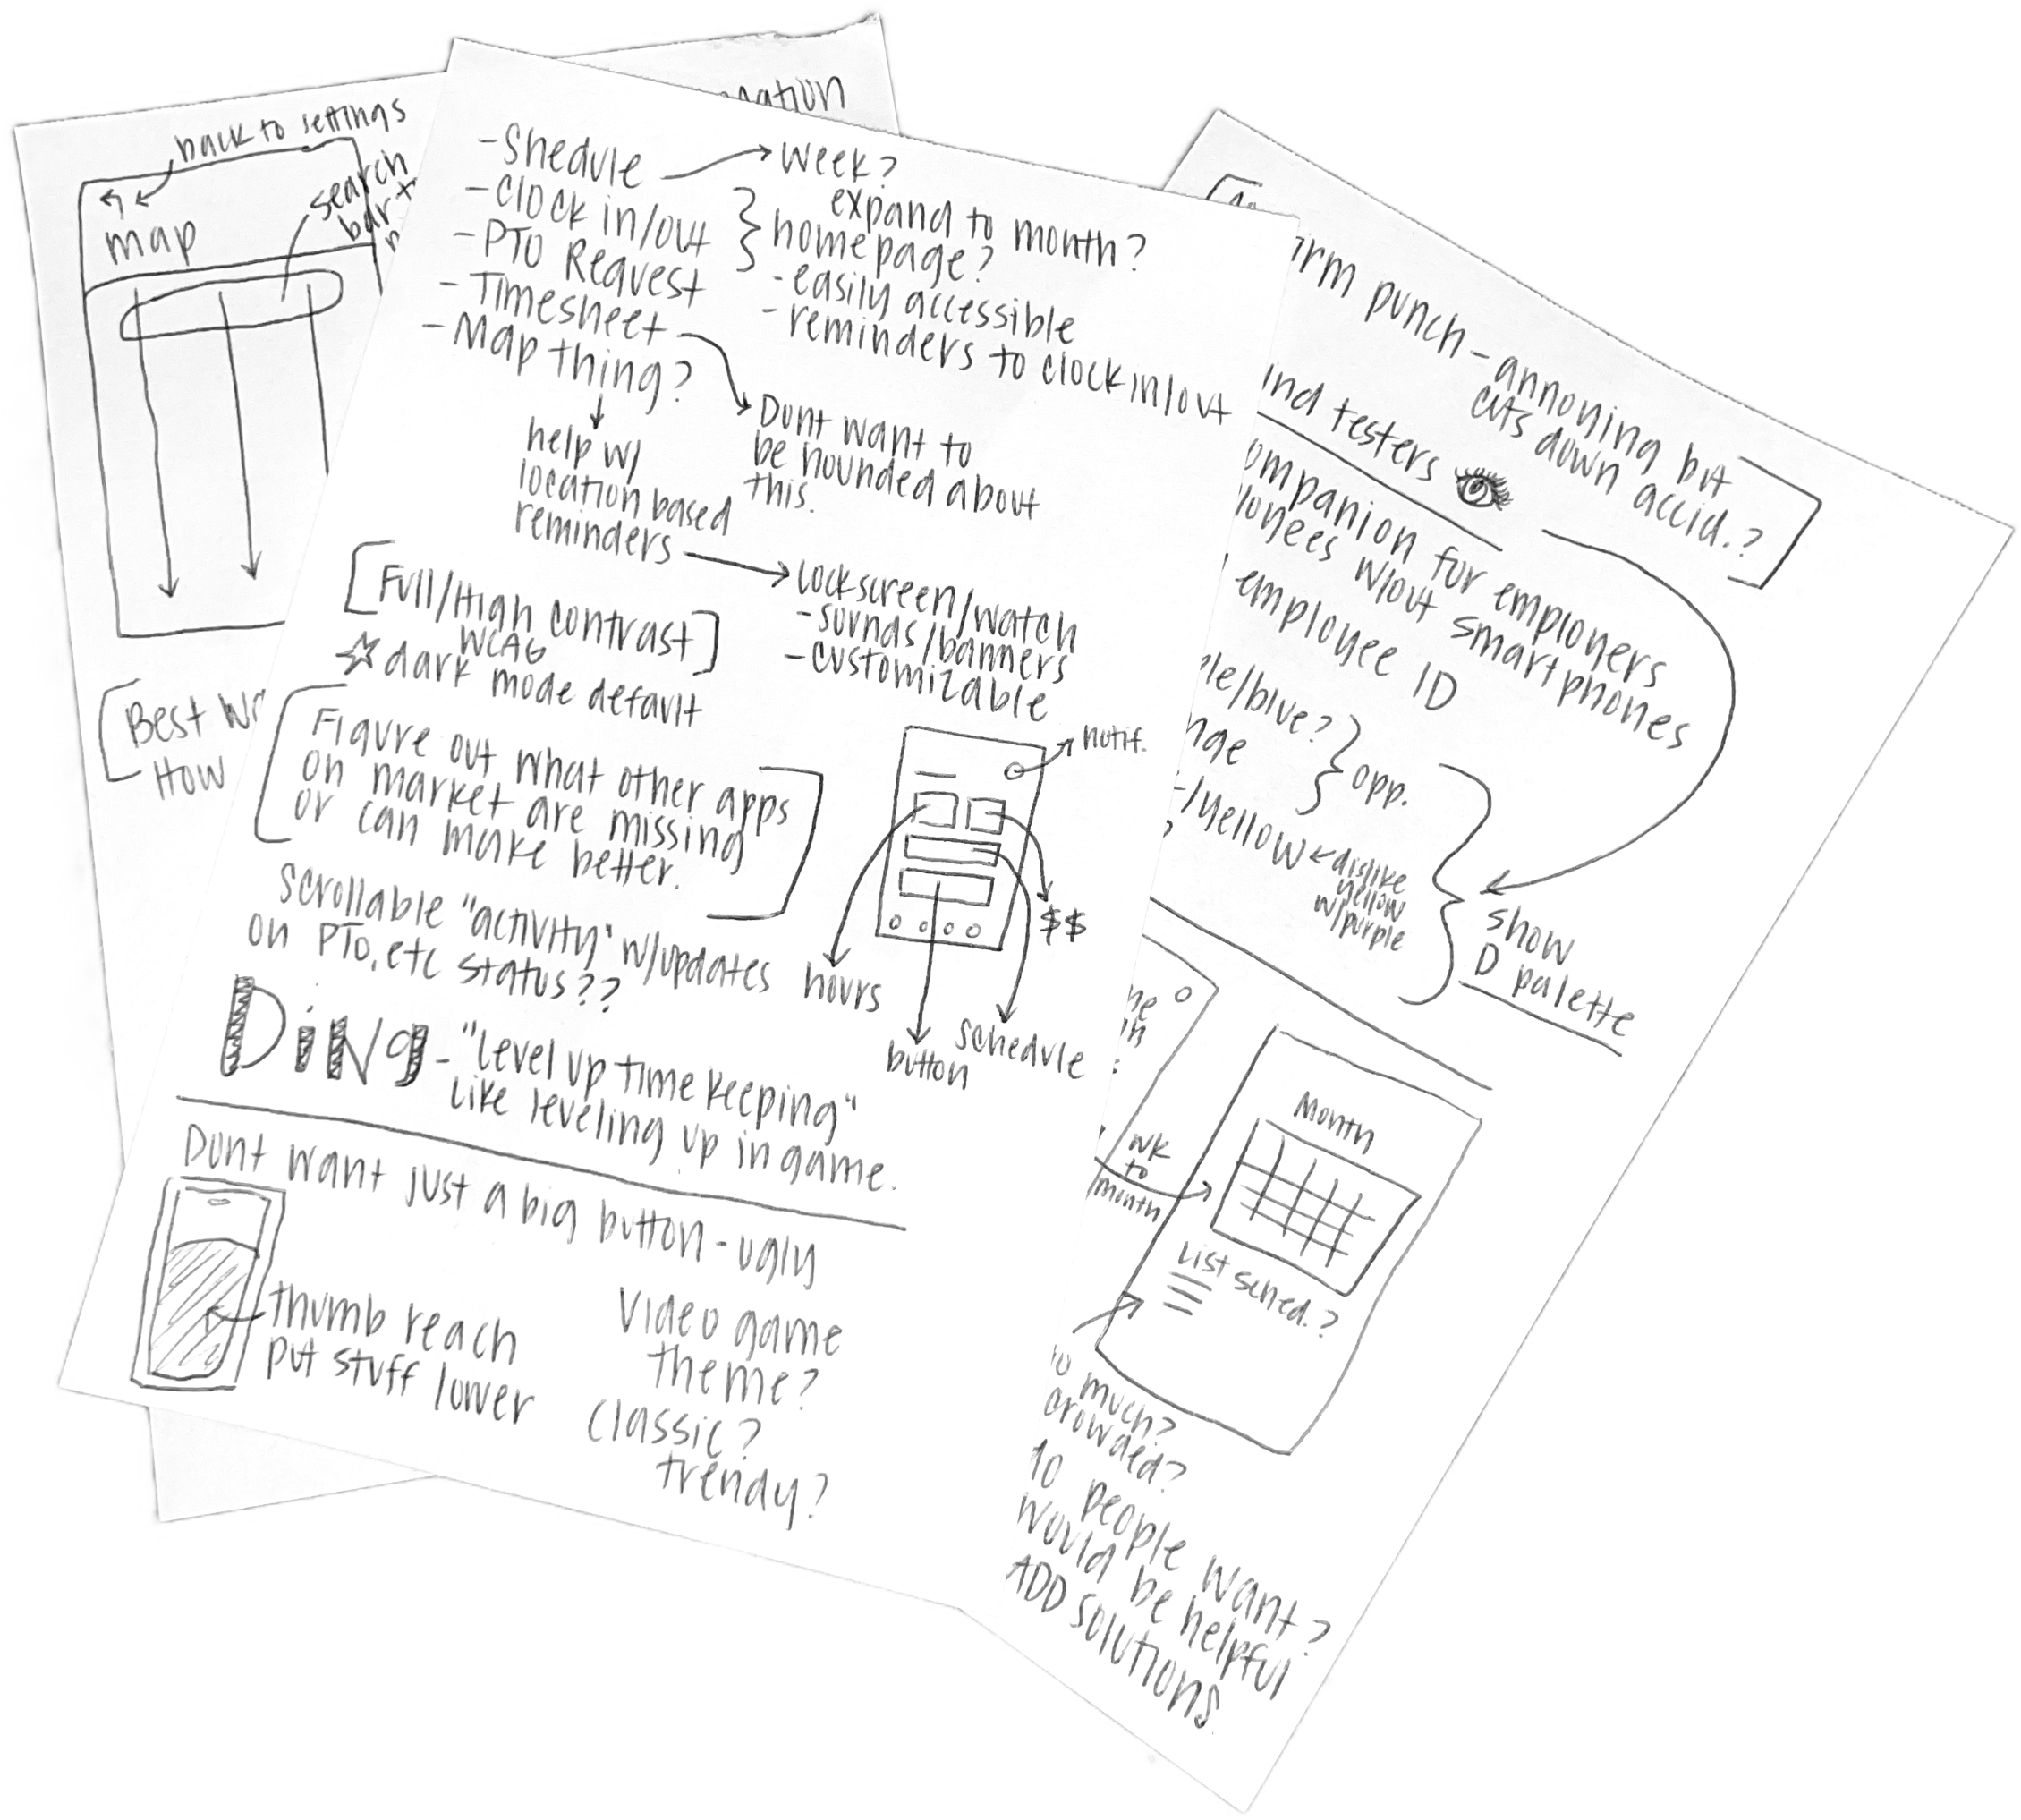 back to settings
search
bar +
map
Best
How
- Shedule
week?
expand to month?
- Clock in/out
- PTO Request
homepage?
- easily accessible
- reminders to clock in/out
- Timesheet
- Map thing?
Dont want to
be hounded about
this.
help w/
location based
reminders
Lockscreen/watch
- sounds/banners
- customizable
[Full/High contrast]
WCAG
☆ dark mode default
[Figure out what other apps
on market are missing
or can make better.]
notif.
hours
$$
schedule
button
Scrollable "activity" w/updates
on PTO, etc status??
DiNg - "Level up time keeping"
Like leveling up in game.
Dont want just a big button - ugly
thumb reach
put stuff lower
Video game
theme?
Classic?
trendy?
punch - annoying but
cuts down accid.?]
testers
for employers
w/out smartphones
employee ID
/blue?
opp.
/yellow
dislike
yellow
w/purple
show
D palette
wk
to
month
Month
List sched.?
much?
crowded?
10 people want?
would be helpful
ADD solutions